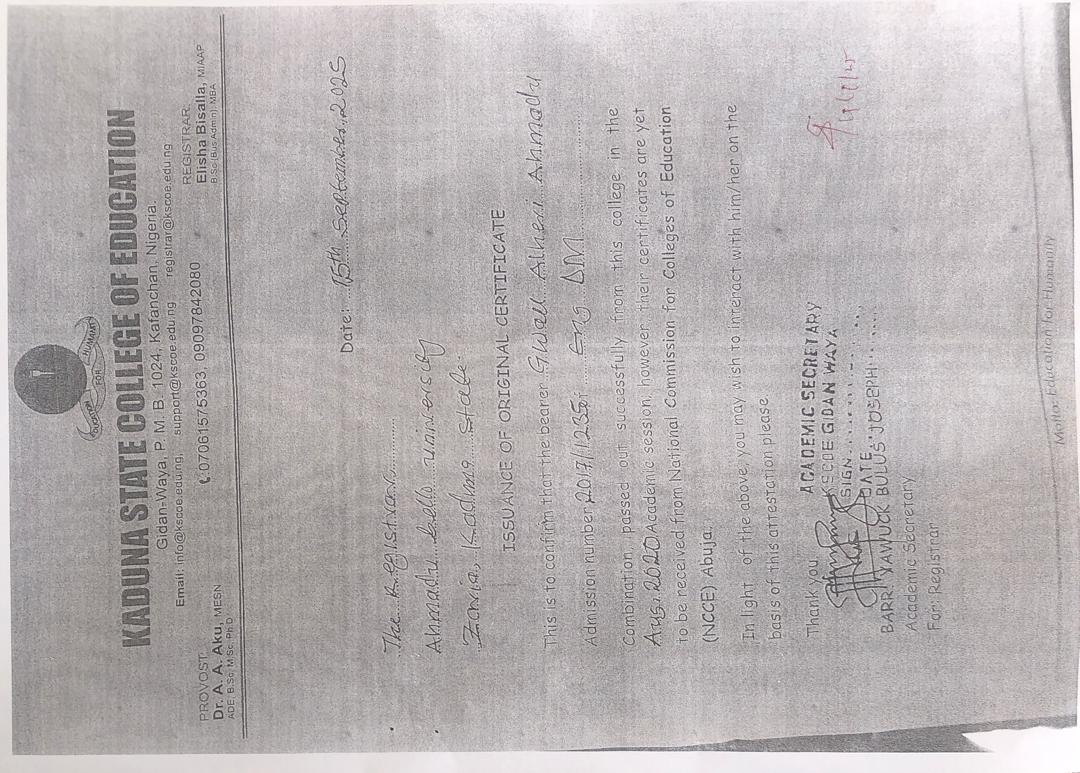 EDUCATION FOR HUMANITY
KADUNA STATE COLLEGE OF EDUCATION
Gidan-Waya, P. M. B. 1024, Kafanchan, Nigeria.
Email: info@kscoe.edu.ng, support@kscoe.edu.ng registrar@kscoe.edu.ng
07061575363, 09097842080
PROVOST:
Dr. A. A. Aku, MESN
ADE, B.Sc, M.Sc, Ph.D
REGISTRAR:
Elisha Bisalla, MIAAP
B.Sc (Bus Admin), MBA
Date: 15th September, 2025
The Registrar
Ahmadu Bello University
Zaria, Kaduna State.
ISSUANCE OF ORIGINAL CERTIFICATE
This is to confirm that the bearer Gwall Alheri Ahmadu
Admission number 2017/1235 of Eng DM
Combination, passed out successfully from this college in the
Aug. 2020 Academic session, however their certificates are yet
to be received from National Commission for Colleges of Education
(NCCE) Abuja.
In light of the above, you may wish to interact with him/her on the
basis of this attestation please.
Thank you
ACADEMIC SECRETARY
KSCOE GIDAN WAYA
SIGN..........
DATE..........
BARR. YAWUCK BULUS JOSEPH
Academic Secretary
For: Registrar
Motto: Education for Humanity